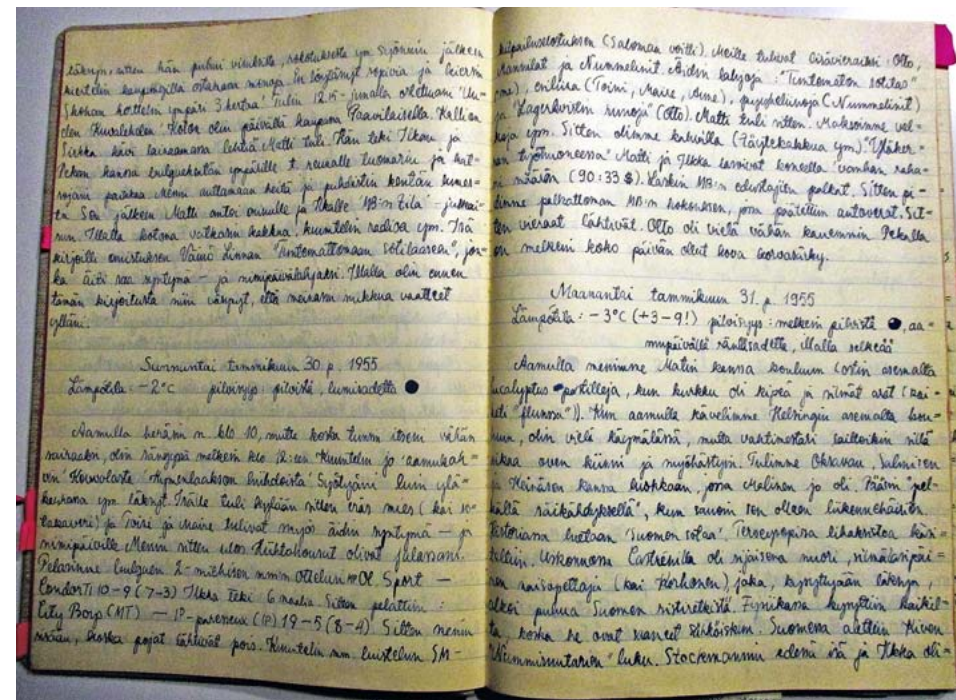 läksyn, sitten hän puhui viinistä, rokotuksesta ym. Syönnin jälkeen
kiertelin kaupungilla ostamassa
hotellin ympäri 3 kertaa. Tulin 12.15-junalla ostettuani "Uu-
den Kuvalehden". Kotona olin päivällä kaupassa Paavilaisella. Kallion
Sirkka kävi lainaamassa lehtiä. Matti tuli. Hän teki Ilkan ja
Pekan kanssa
paikkaa. Menin auttamaan heitä ja puhdistin kentän lumes-
ta. Sen jälkeen Matti antoi minulle ja Ilkalle "MB:n Zila"-
Illalla kotona vatkasin kakkua, kuuntelin radioa ym. Isä
kirjoitti omistuksen Väinö Linnan "Tuntemattomaan sotilaaseen", jon-
ka äiti saa syntymä- ja nimipäivälahjaksi. Illalla olin ennen
tämän kirjoitusta niin väsynyt, että
ylläni.
Sunnuntai tammikuun 30 p. 1955
Lämpötila: -2°C pilvisyys: pilvistä, lumisadetta
Aamulla heräsin n. klo 10, mutta koska tunsin itseni vähän
sairaaksi, olin sängyssä melkein klo 12:een. Kuuntelin jo aamukah-
vin "Kouvolasta" "Kymenlaakson lauhdeista". Syötyäni luin ylä-
ym. läksyt. Meille tuli kylään sitten eräs mies (kai so-
takaveri) ja Toini ja Maire tulivat myös äidin syntymä- ja
nimipäiville. Menin sitten ulos. Lähtalaiset olivat jalassani.
Pelasimme 2-miehisen mm:n ottelun Ol. Sport -
Condor Ti 10-9 (7-3) Ilkka teki 6 maalia. Sitten pelattiin:
City Boys (MT) - IP- (IP) 19-5 (8-4). Sitten menin
sisään, koska pojat lähtivät pois. Kuuntelin mm. luistelun SM-
kilpailuselostuksen (Salomaa voitti). Meille tulivat lisävieraiksi: Otto,
Mannilat ja Nummelinit. Äidin lahjoja: "Tuntematon sotilas"
(me), esiliina (Toini, Maire, Anne), (Nummelinit)
ja "Lagerkvistin runoja" (Otto). Matti tuli sitten. Maksoimme vel-
koja ym. Sitten olimme kahvilla (Täytekakkua ym). Yläker-
ran "työhuoneessa" Matti ja Ilkka laskivat koneella vanhan raha-
määrän (90:33 $). Laskin MB:n edustajien palkat. Sitten pi-
dimme palkattoman MB:n kokouksen, jossa päätettiin autoverot. Sit-
ten vieraat lähtivät. Otto oli vielä vähän kauemmin. Pekalla
on melkein koko päivän ollut kova korvasärky.
Maanantai tammikuun 31. p. 1955
Lämpötila: -3°C (+3-9!) pilvisyys: melkein pilvistä, aa-
mupäivällä räntäsadetta, illalla selkeää
Aamulla menimme Matin kanssa kouluun (ostin asemalta
eucalyptus pastilleja, kun kurkku oli kipeä ja silmät arat (kai-
"flunssa")). Kun aamulla kävelimme Helsingin asemalta kou-
luun, olin vielä käymälässä, mutta vahtimestari laittoikin sillä
aikaa oven kiinni ja myöhästyin. Tulimme Oksavan, Salmisen
ja Heinäsen kanssa luokkaan, jossa Malinen jo oli. Pääsin "pel-
källä säikähdyksellä", kun sanoin sen olleen liikennehäiriön.
Historiassa luetaan "Suomen sotaa". Terveysopissa lihaksistoa käsi-
teltiin. Uskonnossa Castrénilla oli sijaisena nuori, silmälasipäi-
nen naisopettaja (kai Korhonen), joka, kysyttyään läksyn,
alkoi puhua Suomen ristiretkistä. Fysiikassa kysyttiin kaikil-
ta, koska he ovat saaneet sähköiskun. Suomessa alettiin Kiven
"Nummisuutarien" luku. Stockmannin edessä isä ja Ilkka oli-